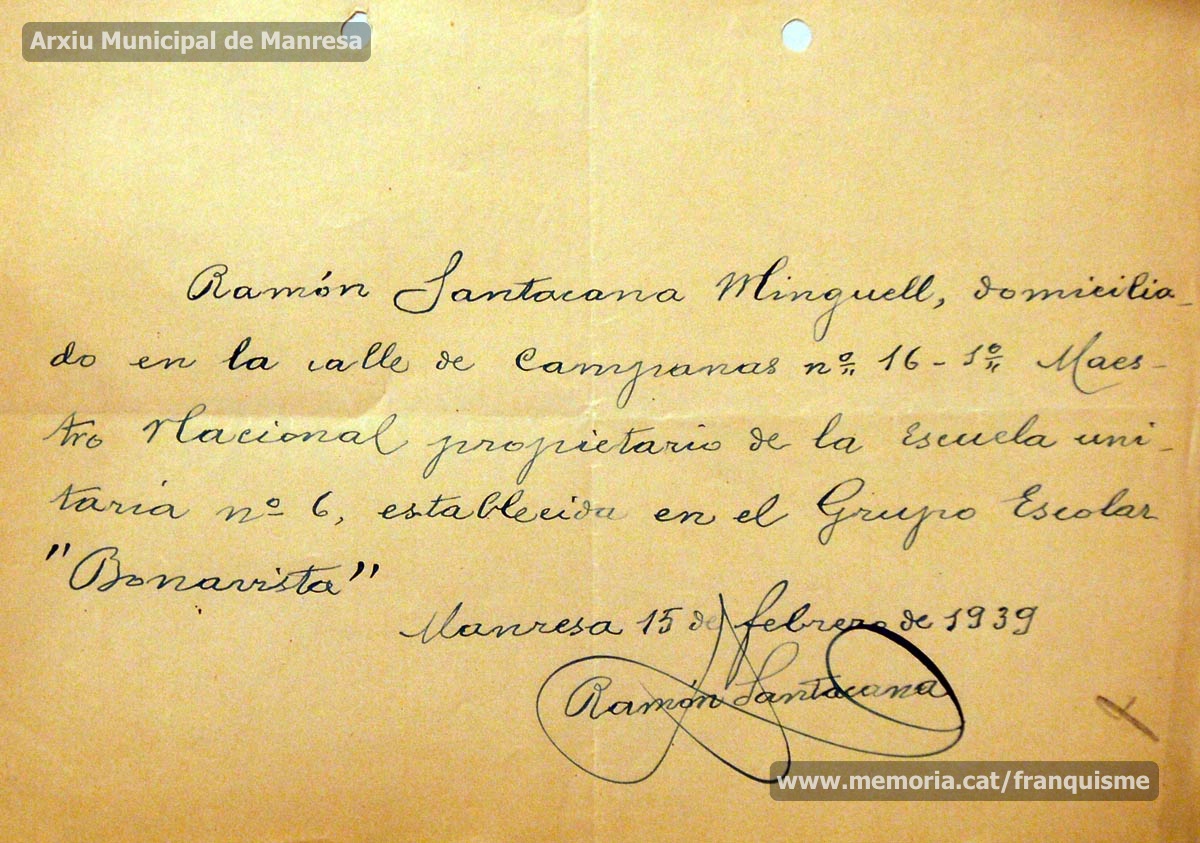 Arxiu Municipal de Manresa
Ramón Santacana Minguell, domicilia-
do en la calle de Campanas nº 16 - 1º Maes-
tro Nacional propietario de la Escuela uni-
taria nº 6, establecida en el Grupo Escolar
"Bonavista"
Manresa 15 de febrero de 1939
Ramón Santacana
www.memoria.cat/franquisme